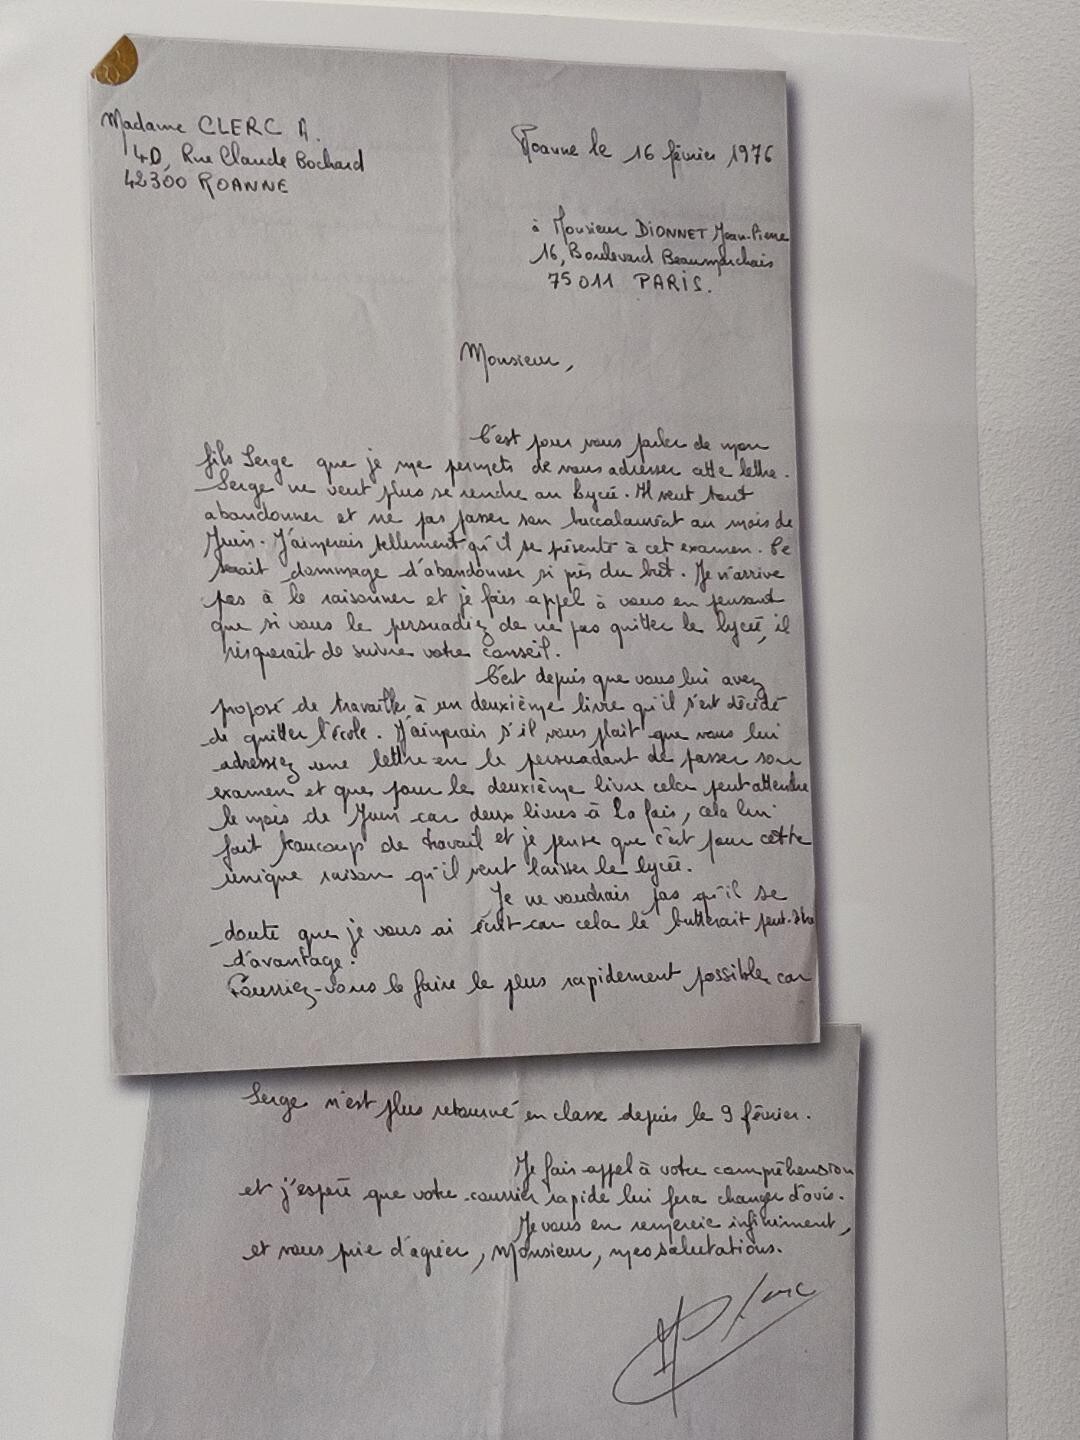 Madame CLERC A.
4D, Rue Claude Bochard
42300 ROANNE
Roanne le 16 février 1976
à Monsieur DIONNET Jean-Pierre
16, Boulevard Beaumarchais
75011 PARIS.
Monsieur,
C'est pour vous parler de mon
fils Serge que je me permets de vous adresser cette lettre.
Serge ne veut plus se rendre au Lycée. Il veut tout
abandonner et ne pas passer son baccalauréat au mois de
Juin. J'aimerais tellement qu'il se présente à cet examen. Ce
serait dommage d'abandonner si près du but. Je n'arrive
pas à le raisonner et je fais appel à vous en pensant
que si vous le persuadiez de ne pas quitter le lycée, il
risquerait de suivre votre conseil.
C'est depuis que vous lui avez
proposé de travailler à un deuxième livre qu'il s'est décidé
de quitter l'école. J'aimerais s'il vous plait que vous lui
adressiez une lettre en le persuadant de passer son
examen et que pour le deuxième livre cela peut attendre
le mois de Juin car deux livres à la fois, cela lui
fait beaucoup de travail et je pense que c'est pour cette
unique raison qu'il veut laisser le lycée.
Je ne voudrais pas qu'il se
doute que je vous ai écrit car cela le butterait peut-être
d'avantage.
Pourriez-vous le faire le plus rapidement possible, car
Serge n'est plus retourné en classe depuis le 9 février.
Je fais appel à votre compréhension
et j'espère que votre courrier rapide lui fera changer d'avis.
Je vous en remercie infiniment,
et vous prie d'agréer, Monsieur, mes salutations.
Clerc